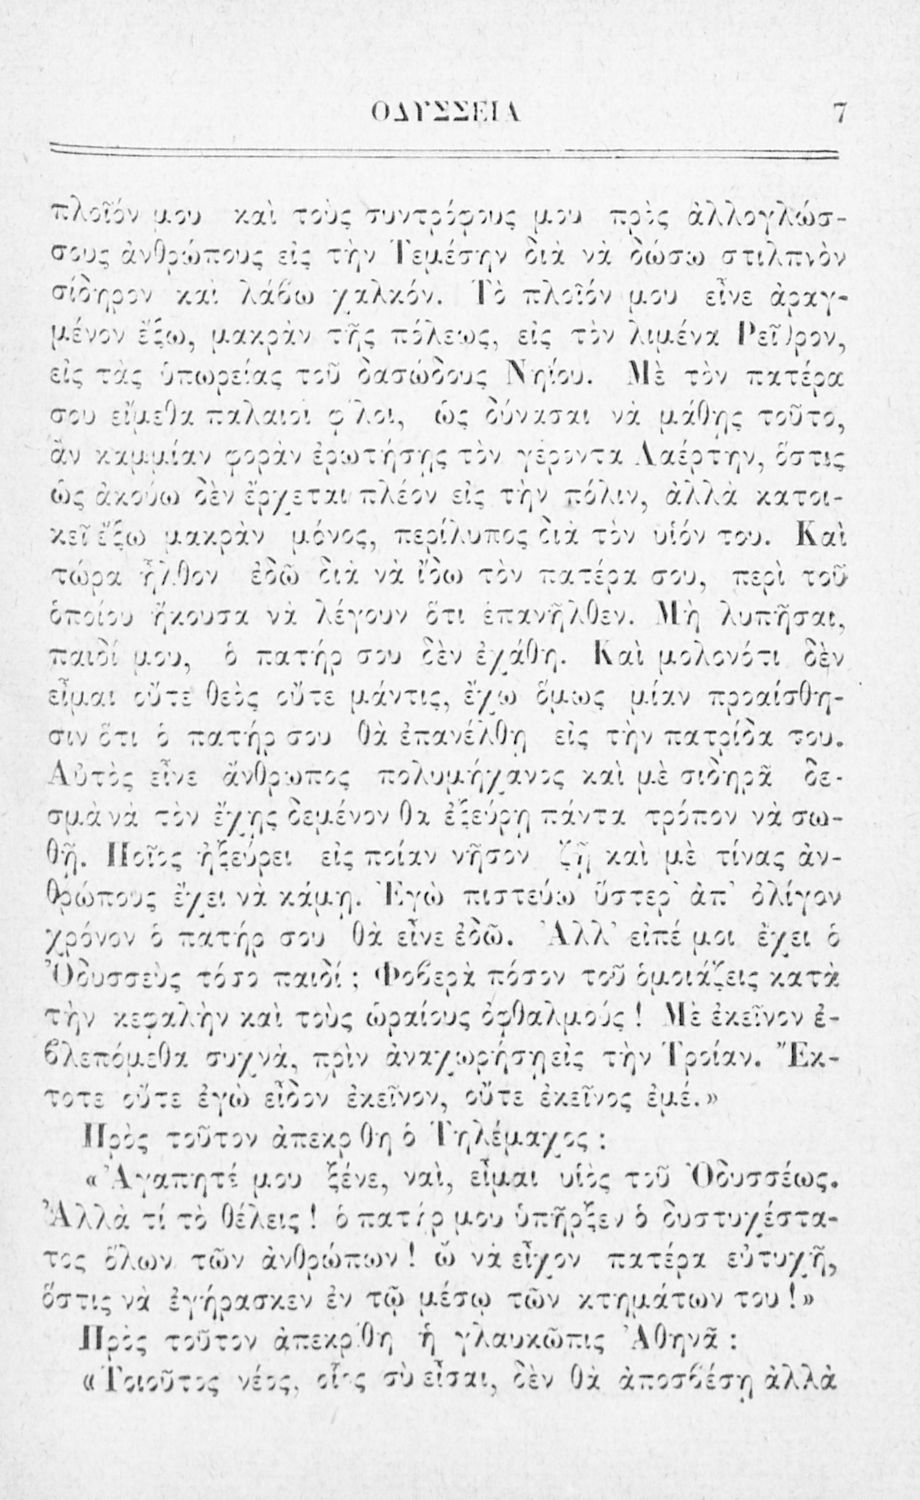 ΟΔΥΣΣΕΙΑ 7
πλοῖόν μου καὶ τοὺς συντρόφους μου πρὸς ἀλλογλώσ-
σους ἀνθρώπους εἰς τὴν Τεμέσην διὰ νὰ δώσω στιλπνὸν
σίδηρον καὶ λάβω χαλκόν. Τὸ πλοῖόν μου εἶνε ἀραγ-
μένον ἔξω, μακρὰν τῆς πόλεως, εἰς τὸν λιμένα Ρεῖθρον,
εἰς τὰς ὑπωρείας τοῦ δασώδους Νηίου. Μὲ τὸν πατέρα
σου εἴμεθα παλαιοὶ φίλοι, ὡς δύνασαι νὰ μάθῃς τοῦτο,
ἂν καμμίαν φορὰν ἐρωτήσῃς τὸν γέροντα Λαέρτην, ὅστις
ὡς ἀκούω δὲν ἔρχεται πλέον εἰς τὴν πόλιν, ἀλλὰ κατοι-
κεῖ ἔξω μακρὰν μόνος, περίλυπος διὰ τὸν υἱόν του. Καὶ
τώρα ἦλθον ἐδῶ διὰ νὰ ἴδω τὸν πατέρα σου, περὶ τοῦ
ὁποίου ἤκουσα νὰ λέγουν ὅτι ἐπανῆλθεν. Μὴ λυπῆσαι,
παιδί μου, ὁ πατήρ σου δὲν ἐχάθη. Καὶ μολονότι δὲν
εἶμαι οὔτε θεὸς οὔτε μάντις, ἔχω ὅμως μίαν προαίσθη-
σιν ὅτι ὁ πατήρ σου θὰ ἐπανέλθῃ εἰς τὴν πατρίδα του.
Αὐτὸς εἶνε ἄνθρωπος πολυμήχανος καὶ μὲ σιδηρᾶ δε-
σμὰ νὰ τὸν ἔχῃς δεμένον θὰ ἐξεύρῃ πάντα τρόπον νὰ σω-
θῇ. Ποῖος ἠξεύρει εἰς ποίαν νῆσον ζῇ καὶ μὲ τίνας ἀν-
θρώπους ἔχει νὰ κάμῃ. Ἐγὼ πιστεύω ὕστερ' ἀπ' ὀλίγον
χρόνον ὁ πατήρ σου θὰ εἶνε ἐδῶ. Ἀλλ' εἰπέ μοι ἔχει ὁ
Ὀδυσσεὺς τόσο παιδί ; Φοβερὰ πόσον τοῦ ὁμοιάζεις κατὰ
τὴν κεφαλὴν καὶ τοὺς ὡραίους ὀφθαλμούς ! Μὲ ἐκεῖνον ἐ-
βλεπόμεθα συχνά, πρὶν ἀναχωρήσῃ εἰς τὴν Τροίαν. Ἔκ-
τοτε οὔτε ἐγὼ εἶδον ἐκεῖνον, οὔτε ἐκεῖνος ἐμέ.»
Πρὸς τοῦτον ἀπεκρίθη ὁ Τηλέμαχος :
«Ἀγαπητέ μου ξένε, ναὶ, εἶμαι υἱὸς τοῦ Ὀδυσσέως.
Ἀλλὰ τί τὸ θέλεις ! ὁ πατήρ μου ὑπῆρξεν ὁ δυστυχέστα-
τος ὅλων τῶν ἀνθρώπων ! ὢ νὰ εἶχον πατέρα εὐτυχῆ,
ὅστις νὰ ἐγήρασκεν ἐν τῷ μέσῳ τῶν κτημάτων του !»
Πρὸς τοῦτον ἀπεκρίθη ἡ γλαυκῶπις Ἀθηνᾶ :
«Τοιοῦτος νέος, οἷος σὺ εἶσαι, δὲν θὰ ἀποσβέσῃ ἀλλὰ